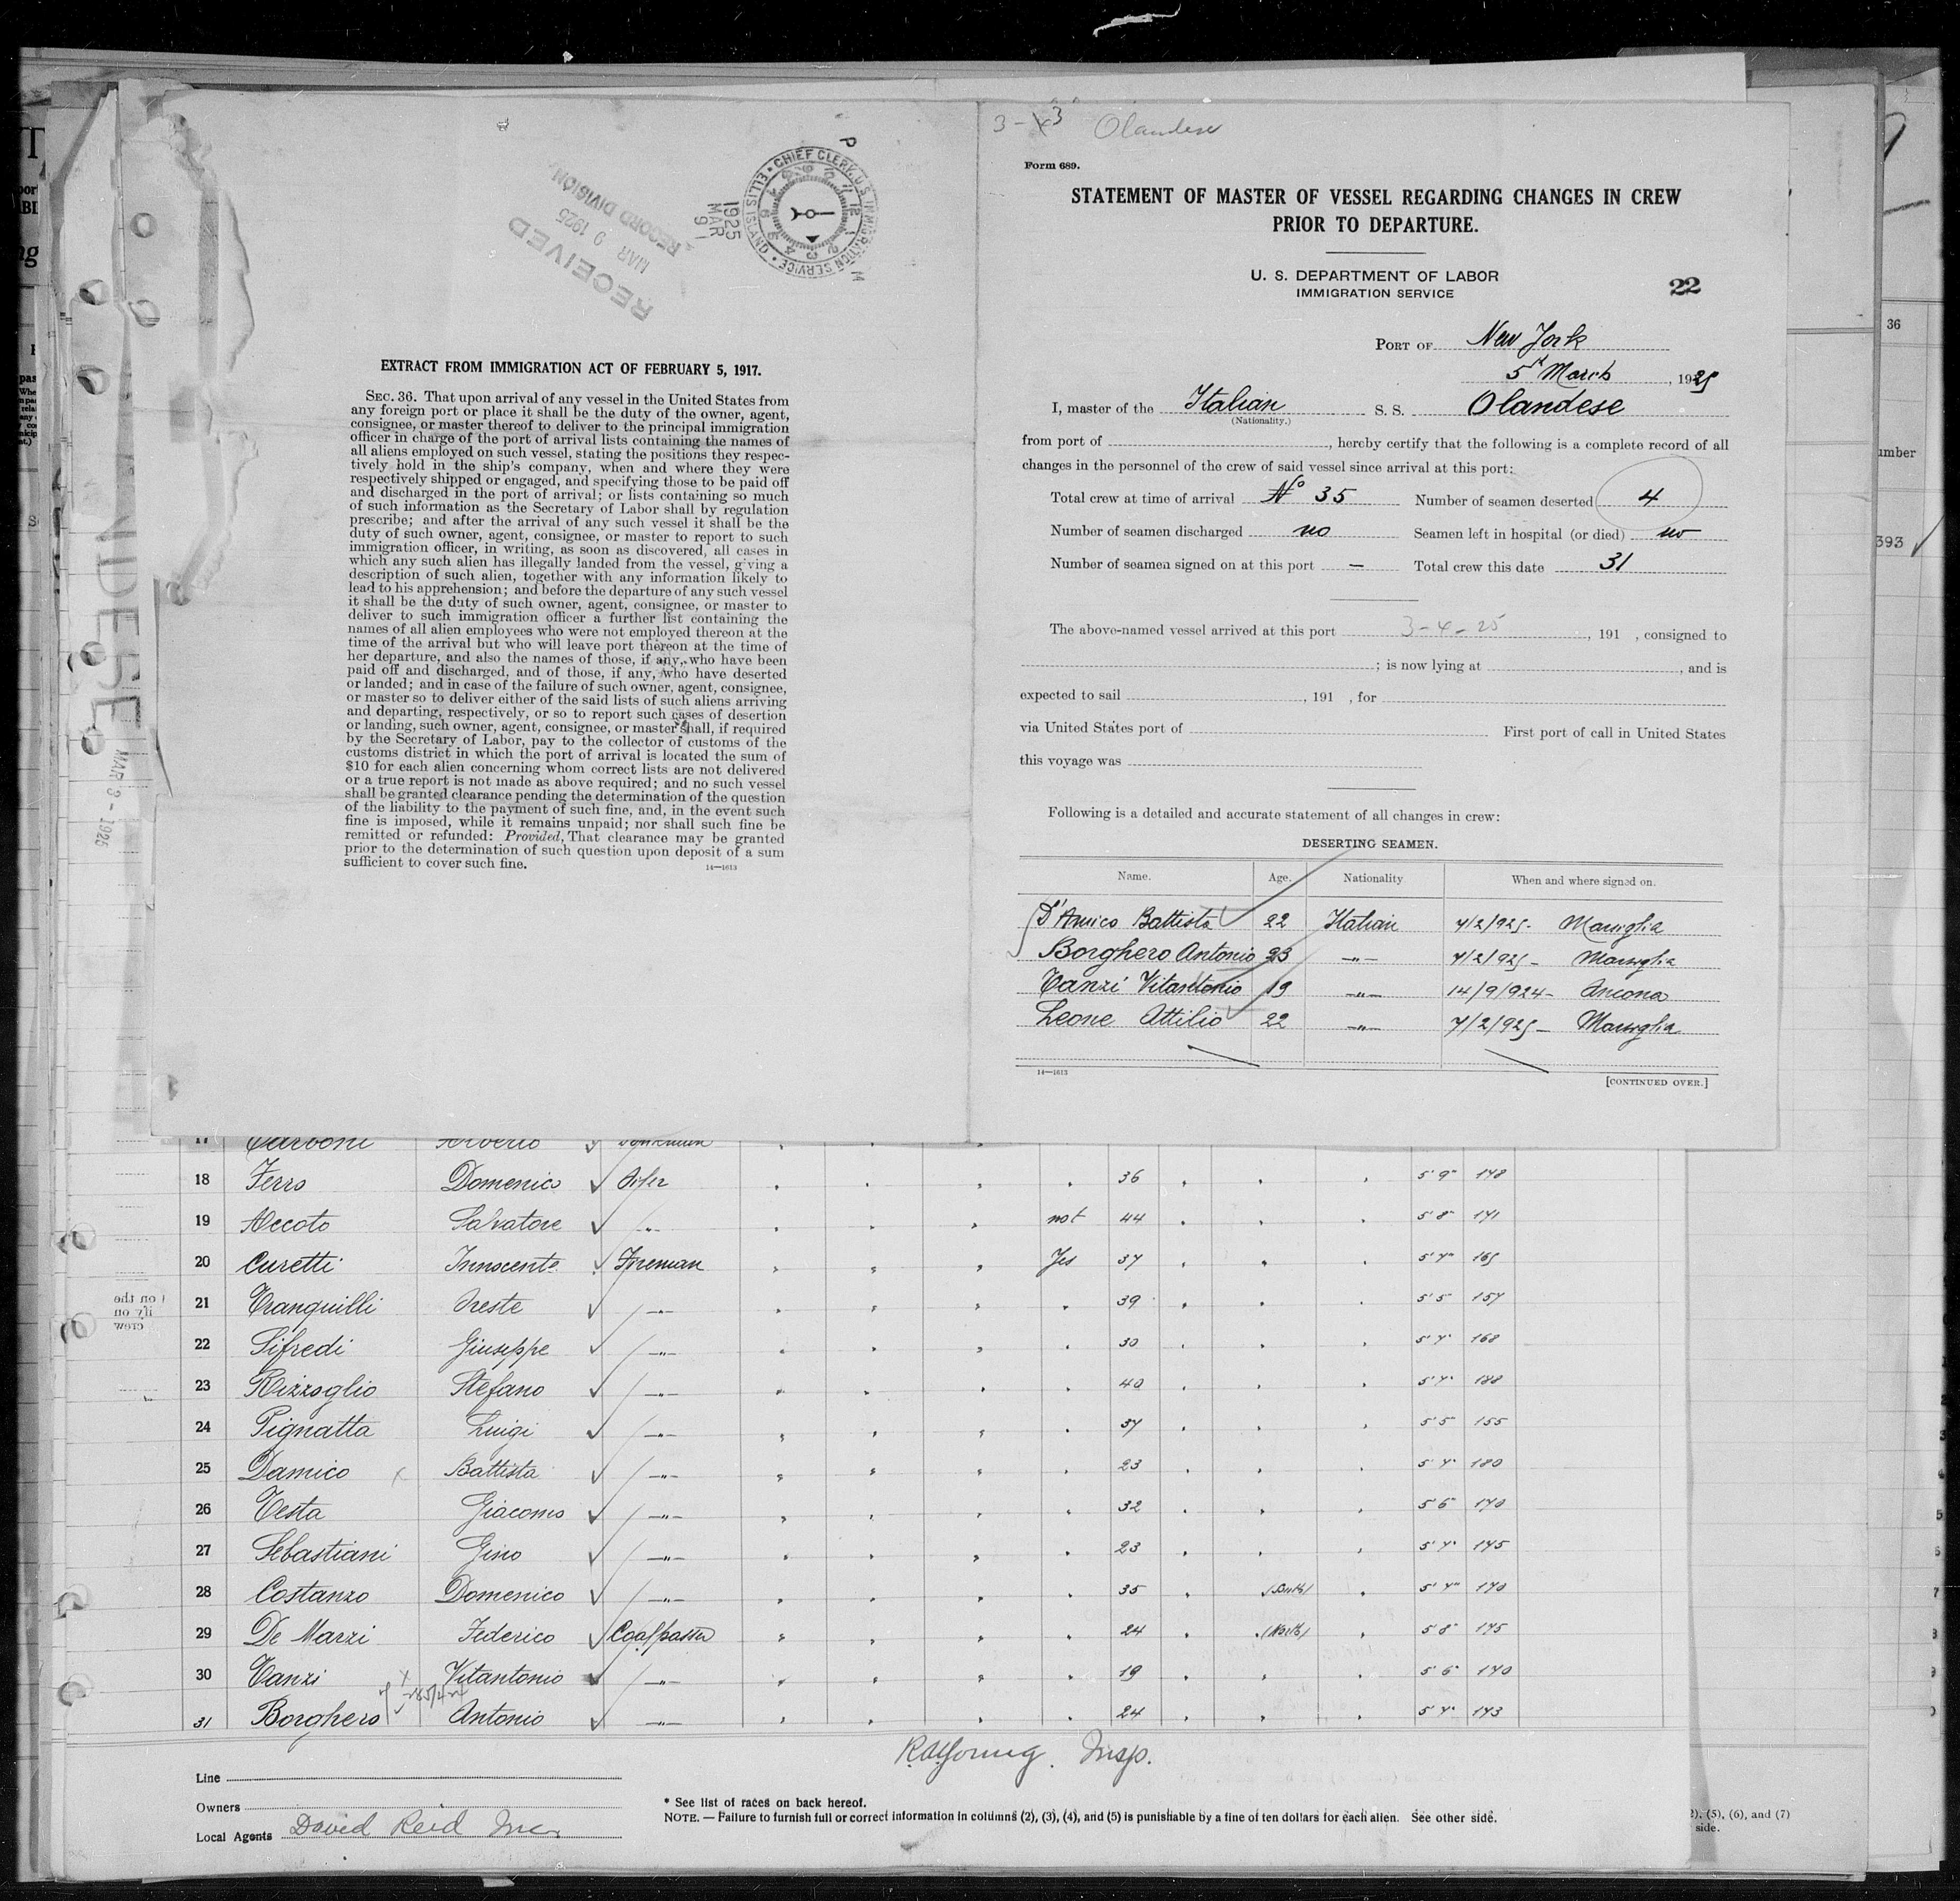 RECEIVED
MAR 9 1925
RECORD DIVISION
CHIEF CLERK, U.S. IMMIGRATION SERVICE • ELLIS ISLAND •
1925
MAR
9
EXTRACT FROM IMMIGRATION ACT OF FEBRUARY 5, 1917.
SEC. 36. That upon arrival of any vessel in the United States from
any foreign port or place it shall be the duty of the owner, agent,
consignee, or master thereof to deliver to the principal immigration
officer in charge of the port of arrival lists containing the names of
all aliens employed on such vessel, stating the positions they respec-
tively hold in the ship's company, when and where they were
respectively shipped or engaged, and specifying those to be paid off
and discharged in the port of arrival; or lists containing so much
of such information as the Secretary of Labor shall by regulation
prescribe; and after the arrival of any such vessel it shall be the
duty of such owner, agent, consignee, or master to report to such
immigration officer, in writing, as soon as discovered, all cases in
which any such alien has illegally landed from the vessel, giving a
description of such alien, together with any information likely to
lead to his apprehension; and before the departure of any such vessel
it shall be the duty of such owner, agent, consignee, or master to
deliver to such immigration officer a further list containing the
names of all alien employees who were not employed thereon at the
time of the arrival but who will leave port thereon at the time of
her departure, and also the names of those, if any, who have been
paid off and discharged, and of those, if any, who have deserted
or landed; and in case of the failure of such owner, agent, consignee,
or master so to deliver either of the said lists of such aliens arriving
and departing, respectively, or so to report such cases of desertion
or landing, such owner, agent, consignee, or master shall, if required
by the Secretary of Labor, pay to the collector of customs of the
customs district in which the port of arrival is located the sum of
$10 for each alien concerning whom correct lists are not delivered
or a true report is not made as above required; and no such vessel
shall be granted clearance pending the determination of the question
of the liability to the payment of such fine, and, in the event such
fine is imposed, while it remains unpaid; nor shall such fine be
remitted or refunded: Provided, That clearance may be granted
prior to the determination of such question upon deposit of a sum
sufficient to cover such fine.
14—1613
3-3 Olandese
Form 689.
STATEMENT OF MASTER OF VESSEL REGARDING CHANGES IN CREW
PRIOR TO DEPARTURE.
U. S. DEPARTMENT OF LABOR
IMMIGRATION SERVICE
22
PORT OF New York
5 March, 1925
I, master of the Italian S. S. Olandese
(Nationality.)
from port of , hereby certify that the following is a complete record of all
changes in the personnel of the crew of said vessel since arrival at this port:
Total crew at time of arrival No 35 Number of seamen deserted 4
Number of seamen discharged no Seamen left in hospital (or died) no
Number of seamen signed on at this port — Total crew this date 31
The above-named vessel arrived at this port 3-4-25, 191 , consigned to
; is now lying at , and is
expected to sail , 191 , for
via United States port of First port of call in United States
this voyage was
Following is a detailed and accurate statement of all changes in crew:
DESERTING SEAMEN.
Name. Age. Nationality. When and where signed on.
D'Amico Battista 22 Italian 7/2/925- Marsiglia
Borghero Antonio 23 —"— 7/2/925- Marsiglia
Tanzi Vitantonio 19 —"— 14/9/924- Ancona
Leone Attilio 22 —"— 7/2/925- Marsiglia
14—1613
[CONTINUED OVER.]
NDESE
MAR 3 - 1925
36
393
17 Carboni
18 Ferro Domenico 36 5'9" 148
19 Accoto Salvatore " not 44 5'8" 141
20 Curetti Innocente Fireman Yes 37 5'7" 165
21 Tranquilli Oreste —"— 39 5'5" 157
22 Sifredi Giuseppe —"— 30 5'7" 168
23 Rizzoglio Stefano —"— 40 5'7" 188
24 Pignatta Luigi —"— 37 5'5" 155
25 Damico x Battista —"— 23 5'7" 180
26 Testa Giacomo —"— 32 5'6" 170
27 Sebastiani Gino —"— 23 5'7" 145
28 Costanzo Domenico —"— 35 (South) 5'7" 170
29 De Marzi Federico Coalpasser 24 (North) 5'8" 175
30 Tanzi x Vitantonio —"— 19 5'6" 140
31 Borghero Antonio —"— 24 5'7" 143
Insp.
Line
Owners
Local Agents David Reid Inc.
* See list of races on back hereof.
NOTE. — Failure to furnish full or correct information in columns (2), (3), (4), and (5) is punishable by a fine of ten dollars for each alien. See other side.
(5), (6), and (7)
side.